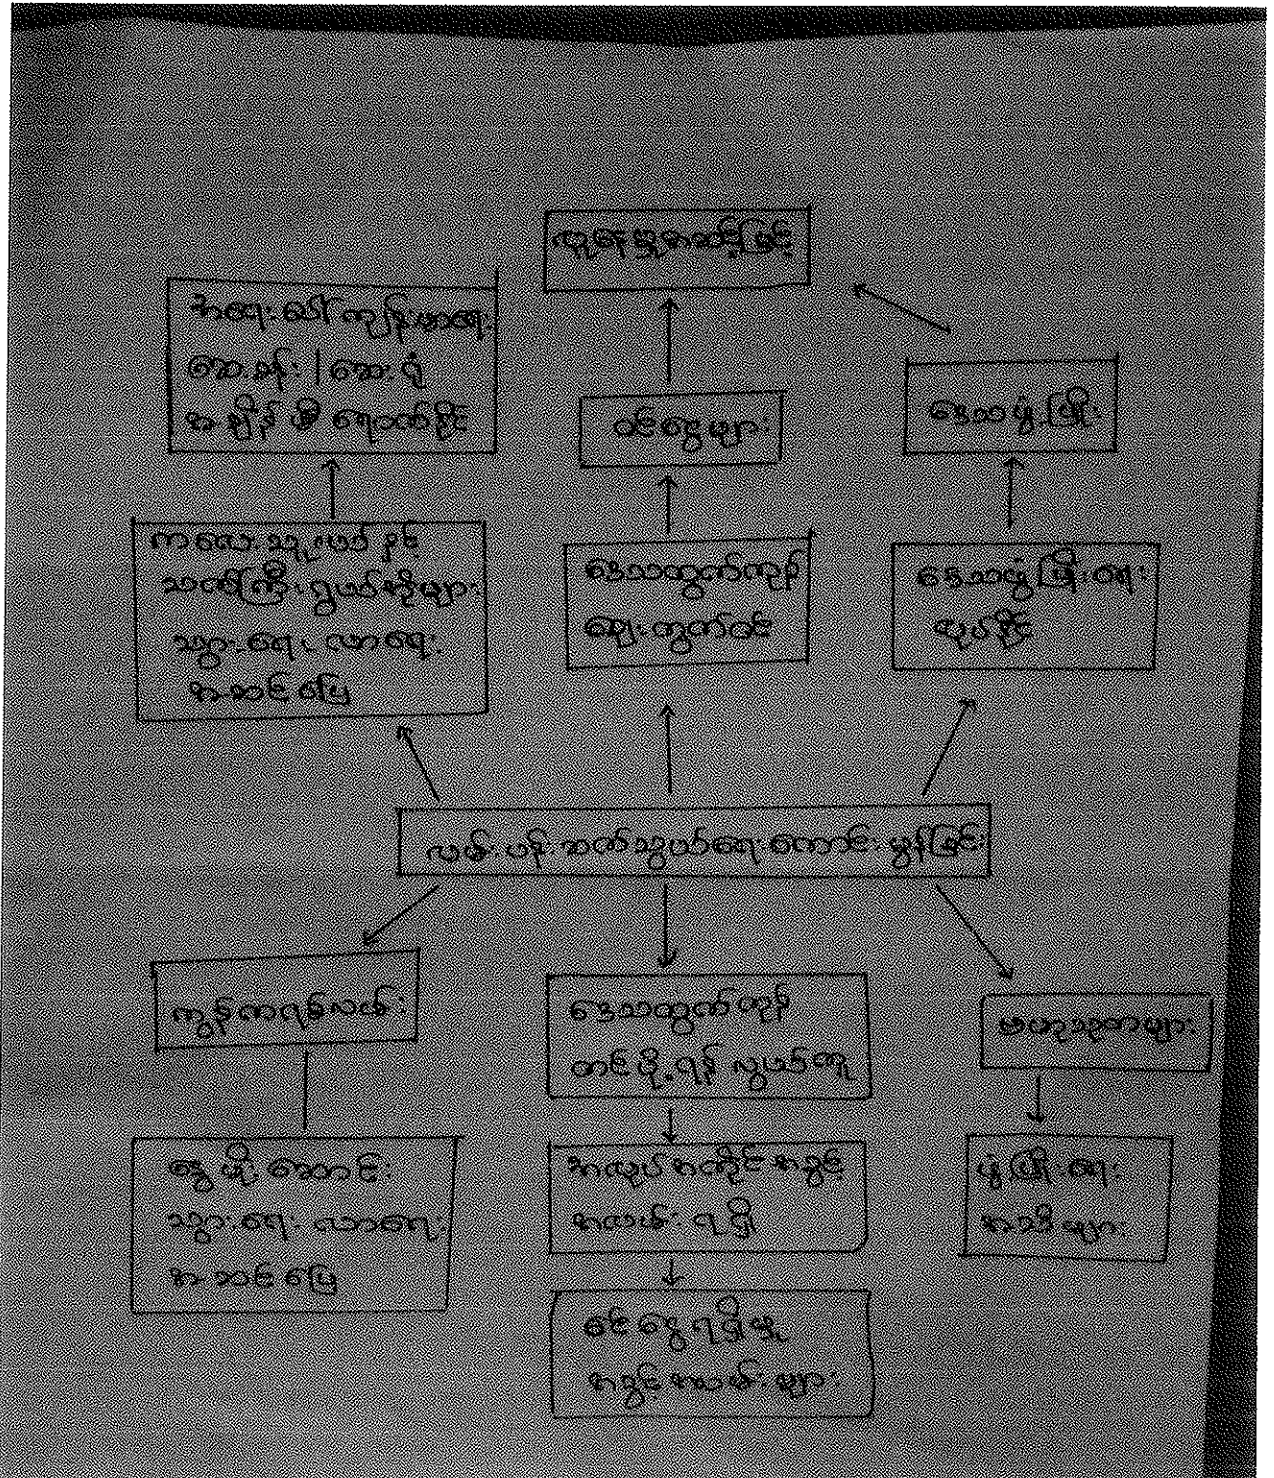 လူနေမှုအဆင့်မြင့်
အရေးပေါ်ကျန်းမာရေး
ဆေးခန်း | ဆေးရုံ
အချိန်မီ ရောက်နိုင်
ဝင်ငွေများ
ဒေသဖွံ့ဖြိုး
ကလေးသူငယ် နှင့်
သက်ကြီးရွယ်အိုများ
သွားရေးလာရေး
အဆင်ပြေ
ဒေသထွက်ကုန်
ဈေးကွက်ဝင်
ဒေသဖွံ့ဖြိုးရေး
လုပ်နိုင်
လမ်းပန်းဆက်သွယ်ရေးကောင်းမွန်ခြင်း
ကွန်ကရစ်လမ်း
ဒေသထွက်ကုန်
တင်ပို့ရန် လွယ်ကူ
ဗဟုသုတများ
နွေ မိုး ဆောင်း
သွားရေးလာရေး
အဆင်ပြေ
အလုပ်အကိုင်အခွင့်
အလမ်းရရှိ
ဖွံ့ဖြိုးရေး
အသိများ
ဝင်ငွေရရှိမှု
အခွင့်အလမ်းများ